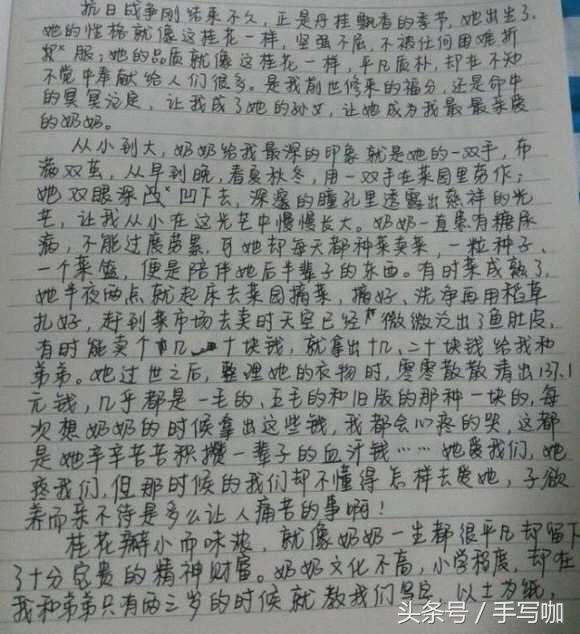 抗日战争刚结束不久，正是丹桂飘香的季节，她出生了。
她的性格就像这桂花一样，坚强不屈，不被任何困难折
服；她的品质就像这桂花一样，平凡质朴，却在不知
不觉中奉献给人们很多。是我前世修来的福分，还是命中
的冥冥注定，让我成了她的孙女，让她成为我最最亲爱
的奶奶。
从小到大，奶奶给我最深的印象就是她的一双手，布
满双茧，从早到晚，春夏秋冬，用一双手在菜园里劳作；
她双眼深凹下去，深邃的瞳孔里透露出慈祥的光
芒，让我从小在这光芒中慢慢长大。奶奶一直患有糖尿
病，不能过度劳累，可她却每天都种菜卖菜，一粒种子、
一个菜篮，便是陪伴她后半辈子的东西。有时菜成熟了，
她半夜两点就起床去菜园摘菜，摘好、洗净再用稻草
扎好，赶到菜市场去卖时天空已经微微泛出了鱼肚皮，
有时能卖个几十块钱，就拿出十几、二十块钱给我和
弟弟。她过世之后，整理她的衣物时，零零散散清出137.1
元钱，几乎都是一毛的、五毛的和旧版的那种一块的，每
次想奶奶的时候拿出这些钱，我都会心疼的哭，这都
是她辛辛苦苦积攒一辈子的血汗钱……她爱我们，她
疼我们，但那时候的我们却不懂得怎样去爱她，子欲
养而亲不待是多么让人痛苦的事啊！
桂花瓣小而味浓，就像奶奶一生都很平凡却留下
了十分宝贵的精神财富。奶奶文化不高，小学程度，却在
我和弟弟只有两三岁的时候就教我们写字，以土为纸，
头条号 / 手写咖